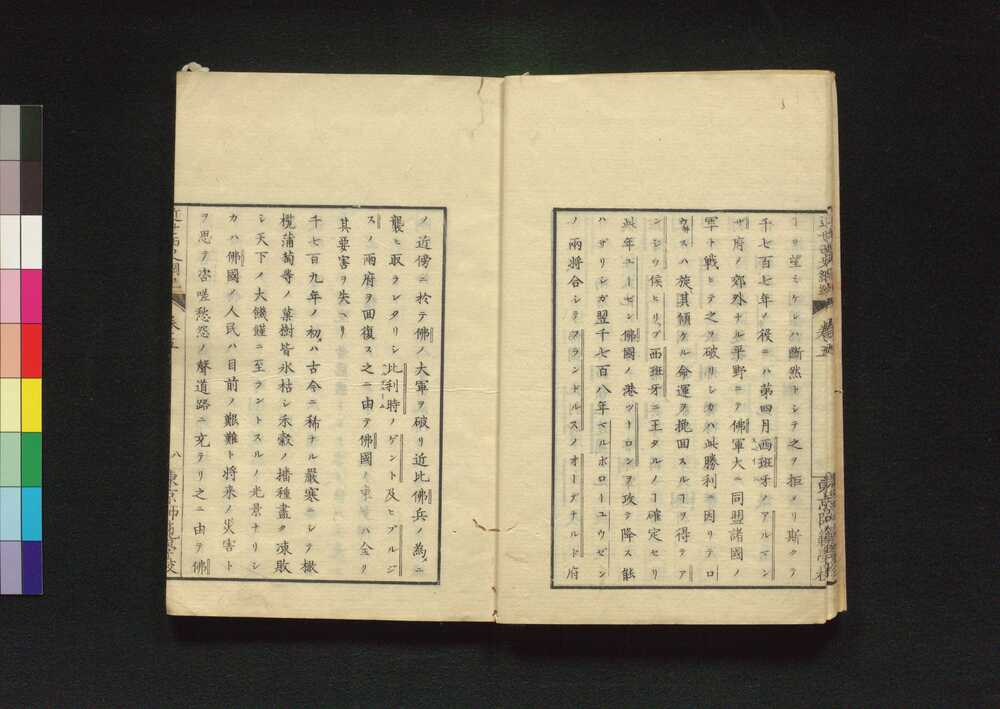 トヲ望ミケレハ斷然トシテ之ヲ拒メリ斯クテ
千七百七年ノ役ニハ第四月西班牙ノアルマン
ザ府ノ郊外ナル平野ニテ佛軍大ニ同盟諸國ノ
軍ト戰ヒテ之ヲ破リシカハ此勝利ニ因リテ
ハ旋其傾ケル命運ヲ挽回スルヿヲ得テア
ンジウ侯ヒリップ西班牙ニ王タルノヿ確定セリ
此年ユーゼン佛國ノ港ツーロンヲ攻テ降ス能
ハザリシガ翌千七百八年マルボローユウゼン
ノ兩將合シテフランドルスノオーデナルド府
ノ近傍ニ於テ佛ノ大軍ヲ破リ近比佛兵ノ爲ニ
襲ヒ取ラレタリシ比利時ノゲント及ヒブルジ
スノ兩府ヲ回復ス之ニ由テ佛國ノ東ハ全ク
其要害ヲ失ヘリ
千七百九年ノ初ハ古今ニ稀ナル嚴寒ニシテ橄
欖蒲萄等ノ菓樹皆氷枯シ禾穀ノ播種盡ク凍敗
シ天下ノ大饑饉ニ至ラントスルノ光景ナリシ
カハ佛國ノ人民ハ目前ノ艱難ト將來ノ災害ト
ヲ思テ咨嗟愁怨ノ聲道路ニ充テリ之ニ由テ佛
卷五
八
東京師範學校